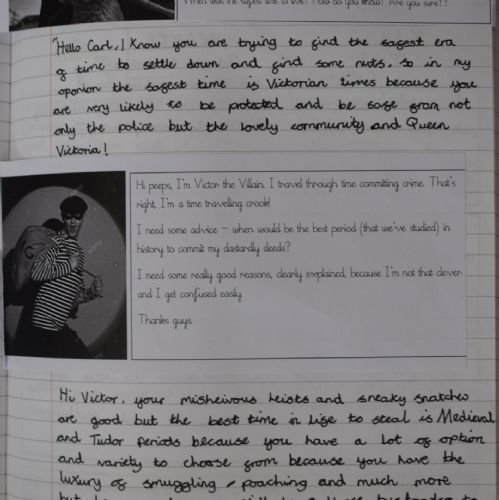 When was the safest time to live? How do you know? Are you sure??
"Hello Carl, I know you are trying to find the safest era
of time to settle down and find some nuts, so in my
oponion the safest time is Victorian times because you
are very likely to be protected and be safe from not
only the police but the lovely community and Queen
Victoria!
Hi peeps, I'm Victor the Villain. I travel through time committing crime. That's
right, I'm a time travelling crook!
I need some advice – when would be the best period (that we've studied) in
history to commit my dastardly deeds?
I need some really good reasons, clearly explained, because I'm not that clever
and I get confused easily.
Thanks guys.
Hi Victor, your misheivous heists and sneaky snatches
are good but the best time in life to steal is Medieval
and Tudor periods because you have a lot of option
and variety to choose from because you have the
luxury of smuggling, poaching and much more